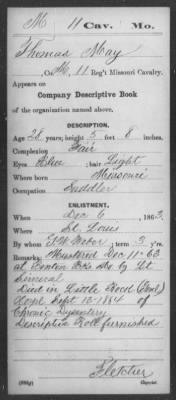 M 11 Cav. Mo.
Thomas May
, Co. M, 11 Reg't Missouri Cavalry.
Appears on
Company Descriptive Book
of the organization named above.
DESCRIPTION.
Age 38 years; height 5 feet 8 inches.
Complexion Fair
Eyes Blue; hair Light
Where born Missouri
Occupation Saddler
ENLISTMENT.
When Dec 6, 1863.
Where St. Louis
By whom Weber; term 3 y'rs.
Remarks: Mustered Dec 11-63
at Benton Bks Mo by Lt
Died in Little Rock (Genl)
Hospt Sept 12-1864 of
Chronic Dysentery
Descriptive Roll furnished
Fletcher
Copyist.